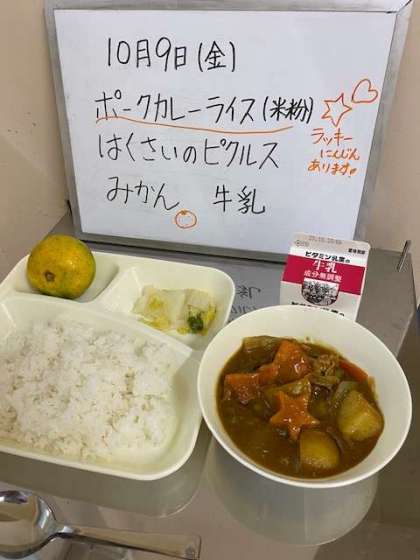 10月9日(金)
ポークカレーライス(米粉)
はくさいのピクルス
みかん 牛乳
ラッキー
にんじん
あります!
ビタミン乳業の
牛乳
成分無調整